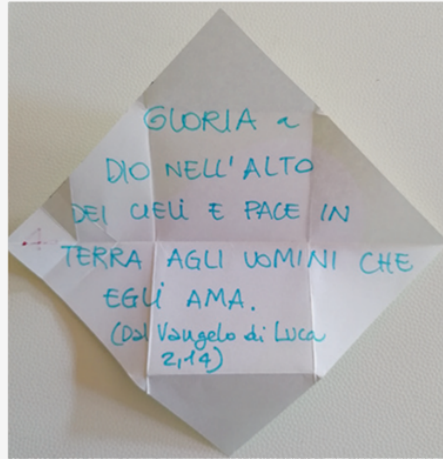 GLORIA a
DIO NELL'ALTO
DEI CIELI E PACE IN
TERRA AGLI UOMINI CHE
EGLI AMA.
(Dal Vangelo di Luca
2,14)